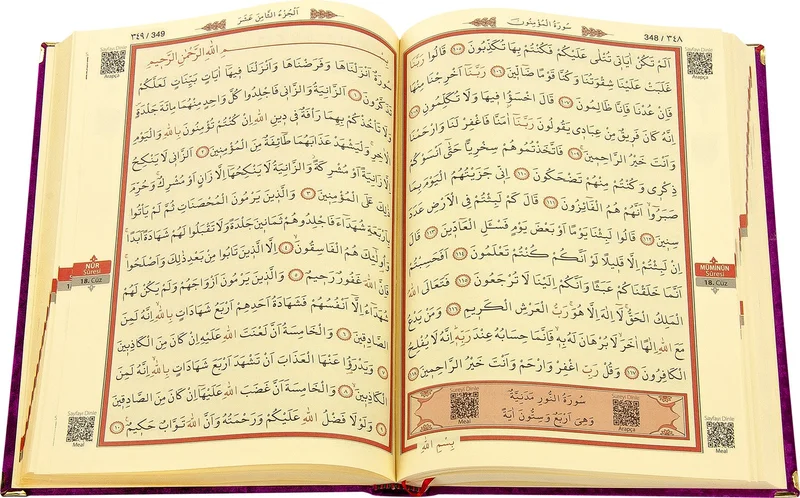 348 / ٣٤٨
سُورَةُ الْمُؤْمِنُونَ
Sayfayı Dinle
Arapça
اَلَمْ تَكُنْ اٰيَاتٖى تُتْلٰى عَلَيْكُمْ فَكُنْتُمْ بِهَا تُكَذِّبُونَ ﴿١٠٥﴾ قَالُوا رَبَّنَا
غَلَبَتْ عَلَيْنَا شِقْوَتُنَا وَكُنَّا قَوْمًا ضَٓالّٖينَ ﴿١٠٦﴾ رَبَّنَٓا اَخْرِجْنَا مِنْهَا
فَاِنْ عُدْنَا فَاِنَّا ظَالِمُونَ ﴿١٠٧﴾ قَالَ اخْسَؤُ۫ا فٖيهَا وَلَا تُكَلِّمُونِ ﴿١٠٨﴾
اِنَّهُ كَانَ فَرٖيقٌ مِنْ عِبَادٖى يَقُولُونَ رَبَّنَٓا اٰمَنَّا فَاغْفِرْ لَنَا وَارْحَمْنَا
وَاَنْتَ خَيْرُ الرَّاحِمٖينَ ﴿١٠٩﴾ فَاتَّخَذْتُمُوهُمْ سِخْرِيًّا حَتّٰٓى اَنْسَوْكُمْ
ذِكْرٖى وَكُنْتُمْ مِنْهُمْ تَضْحَكُونَ ﴿١١٠﴾ اِنّٖى جَزَيْتُهُمُ الْيَوْمَ بِمَا
صَبَرُٓوا اَنَّهُمْ هُمُ الْفَٓائِزُونَ ﴿١١١﴾ قَالَ كَمْ لَبِثْتُمْ فِى الْاَرْضِ عَدَدَ
سِنٖينَ ﴿١١٢﴾ قَالُوا لَبِثْنَا يَوْمًا اَوْ بَعْضَ يَوْمٍ فَسْـَٔلِ الْعَٓادّٖينَ ﴿١١٣﴾ قَالَ
اِنْ لَبِثْتُمْ اِلَّا قَلٖيلًا لَوْ اَنَّكُمْ كُنْتُمْ تَعْلَمُونَ ﴿١١٤﴾ اَفَحَسِبْتُمْ
اَنَّمَا خَلَقْنَاكُمْ عَبَثًا وَاَنَّكُمْ اِلَيْنَا لَا تُرْجَعُونَ ﴿١١٥﴾ فَتَعَالَى اللّٰهُ
الْمَلِكُ الْحَقُّ لَٓا اِلٰهَ اِلَّا هُوَ رَبُّ الْعَرْشِ الْكَرٖيمِ ﴿١١٦﴾ وَمَنْ يَدْعُ
مَعَ اللّٰهِ اِلٰهًا اٰخَرَ لَا بُرْهَانَ لَهُ بِهٖ فَاِنَّمَا حِسَابُهُ عِنْدَ رَبِّهٖ اِنَّهُ لَا يُفْلِحُ
الْكَافِرُونَ ﴿١١٧﴾ وَقُلْ رَبِّ اغْفِرْ وَارْحَمْ وَاَنْتَ خَيْرُ الرَّاحِمٖينَ ﴿١١٨﴾
MÜMİNÛN
Sûresi
18. Cüz
Sûreyi Dinle
Meal
سُورَةُ النُّورِ مَدَنِيَّةٌ
وَهِىَ اَرْبَعٌ وَسِتُّونَ اٰيَةً
Sûreyi Dinle
Arapça
Sayfayı Dinle
Meal
بِسْمِ اللّٰهِ
٣٤٩ / 349
اَلْجُزْءُ الثَّامِنَ عَشَرَ
Sayfayı Dinle
Arapça
بِسْمِ اللّٰهِ الرَّحْمٰنِ الرَّحٖيمِ
سُورَةٌ اَنْزَلْنَاهَا وَفَرَضْنَاهَا وَاَنْزَلْنَا فٖيهَٓا اٰيَاتٍ بَيِّنَاتٍ لَعَلَّكُمْ
تَذَكَّرُونَ ﴿١﴾ اَلزَّانِيَةُ وَالزَّانٖى فَاجْلِدُوا كُلَّ وَاحِدٍ مِنْهُمَا مِائَةَ جَلْدَةٍ
وَلَا تَأْخُذْكُمْ بِهِمَا رَأْفَةٌ فٖى دٖينِ اللّٰهِ اِنْ كُنْتُمْ تُؤْمِنُونَ بِاللّٰهِ وَالْيَوْمِ
الْاٰخِرِ وَلْيَشْهَدْ عَذَابَهُمَا طَٓائِفَةٌ مِنَ الْمُؤْمِنٖينَ ﴿٢﴾ اَلزَّانٖى لَا يَنْكِحُ
اِلَّا زَانِيَةً اَوْ مُشْرِكَةً وَالزَّانِيَةُ لَا يَنْكِحُهَٓا اِلَّا زَانٍ اَوْ مُشْرِكٌ وَحُرِّمَ
ذٰلِكَ عَلَى الْمُؤْمِنٖينَ ﴿٣﴾ وَالَّذٖينَ يَرْمُونَ الْمُحْصَنَاتِ ثُمَّ لَمْ يَأْتُوا
بِاَرْبَعَةِ شُهَدَٓاءَ فَاجْلِدُوهُمْ ثَمَانٖينَ جَلْدَةً وَلَا تَقْبَلُوا لَهُمْ شَهَادَةً اَبَدًا
وَاُولٰٓئِكَ هُمُ الْفَاسِقُونَ ﴿٤﴾ اِلَّا الَّذٖينَ تَابُوا مِنْ بَعْدِ ذٰلِكَ وَاَصْلَحُوا
فَاِنَّ اللّٰهَ غَفُورٌ رَحٖيمٌ ﴿٥﴾ وَالَّذٖينَ يَرْمُونَ اَزْوَاجَهُمْ وَلَمْ يَكُنْ لَهُمْ
شُهَدَٓاءُ اِلَّٓا اَنْفُسُهُمْ فَشَهَادَةُ اَحَدِهِمْ اَرْبَعُ شَهَادَاتٍ بِاللّٰهِ اِنَّهُ لَمِنَ
الصَّادِقٖينَ ﴿٦﴾ وَالْخَامِسَةُ اَنَّ لَعْنَتَ اللّٰهِ عَلَيْهِ اِنْ كَانَ مِنَ الْكَاذِبٖينَ
﴿٧﴾ وَيَدْرَؤُ۬ا عَنْهَا الْعَذَابَ اَنْ تَشْهَدَ اَرْبَعَ شَهَادَاتٍ بِاللّٰهِ اِنَّهُ لَمِنَ
الْكَاذِبٖينَ ﴿٨﴾ وَالْخَامِسَةَ اَنَّ غَضَبَ اللّٰهِ عَلَيْهَٓا اِنْ كَانَ مِنَ الصَّادِقٖينَ
﴿٩﴾ وَلَوْلَا فَضْلُ اللّٰهِ عَلَيْكُمْ وَرَحْمَتُهُ وَاَنَّ اللّٰهَ تَوَّابٌ حَكٖيمٌ ﴿١٠﴾
NÛR
Sûresi
18. Cüz
Sayfayı Dinle
Meal